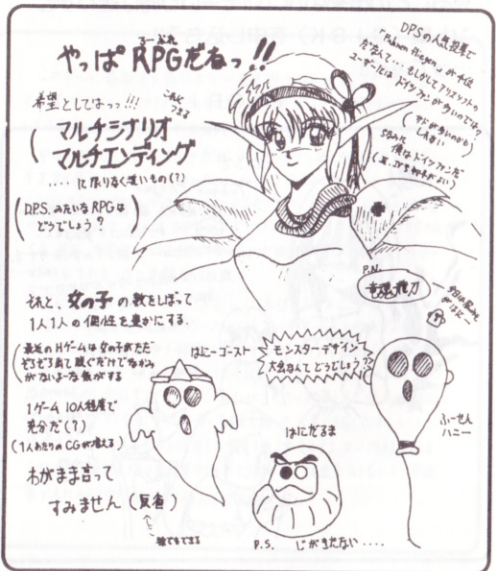 やっぱRPGだねっ!!
希望としてはっっ!!!
マルチシナリオ
マルチエンディング
....に限りなく近いもの(?)
D.P.S.みたいなRPGは
どうでしょう?
それと、女の子の数をしぼって
1人1人の個性を豊かにする.
最近のHゲームは女の子がただ
ぞろぞろ出て脱ぐだけでなかみ
がないよーな気がする
1ゲーム 10人程度で
充分だ(?)
(1人あたりのCGが増える)
わがまま言って
すみません(反省)
猿でもできる
DPSの人気投票で
だなんて...もしかしてアリスソフトの
ユーザーにはドイツファンが多いのでは?
ちなみに
僕はドイツファンだ
P.N.
はにーゴースト
モンスターデザイン
大会なんてどうでしょう
はにだるま
ふーせん
ハニー
P.S. じがきたない....